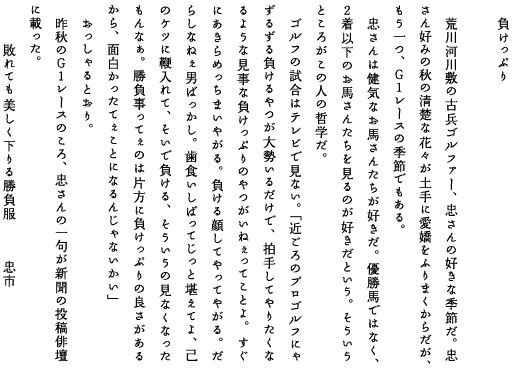 負けっぷり
荒川河川敷の古兵ゴルファー、忠さんの好きな季節だ。忠
さん好みの秋の清楚な花々が土手に愛嬌をふりまくからだが、
もう一つ、G1レースの季節でもある。
忠さんは健気なお馬さんたちが好きだ。優勝馬ではなく、
2着以下のお馬さんたちを見るのが好きだという。そういう
ところがこの人の哲学だ。
ゴルフの試合はテレビで見ない。「近ごろのプロゴルフにゃ
ずるずる負けるやつが大勢いるだけで、拍手してやりたくな
るような見事な負けっぷりのやつがいねぇってことよ。すぐ
にあきらめっちまいやがる。負ける顔してやってやがる。だ
らしなねぇ男ばっかし。歯食いしばってじっと堪えてよ、己
のケツに鞭入れて、そいで負ける、そういうの見なくなった
もんなぁ。勝負事ってぇのは片方に負けっぷりの良さがある
から、面白かったてぇことになるんじゃないかい」
おっしゃるとおり。
昨秋のG1レースのころ、忠さんの一句が新聞の投稿俳壇
に載った。
敗れても美しく下りる勝負服　忠市